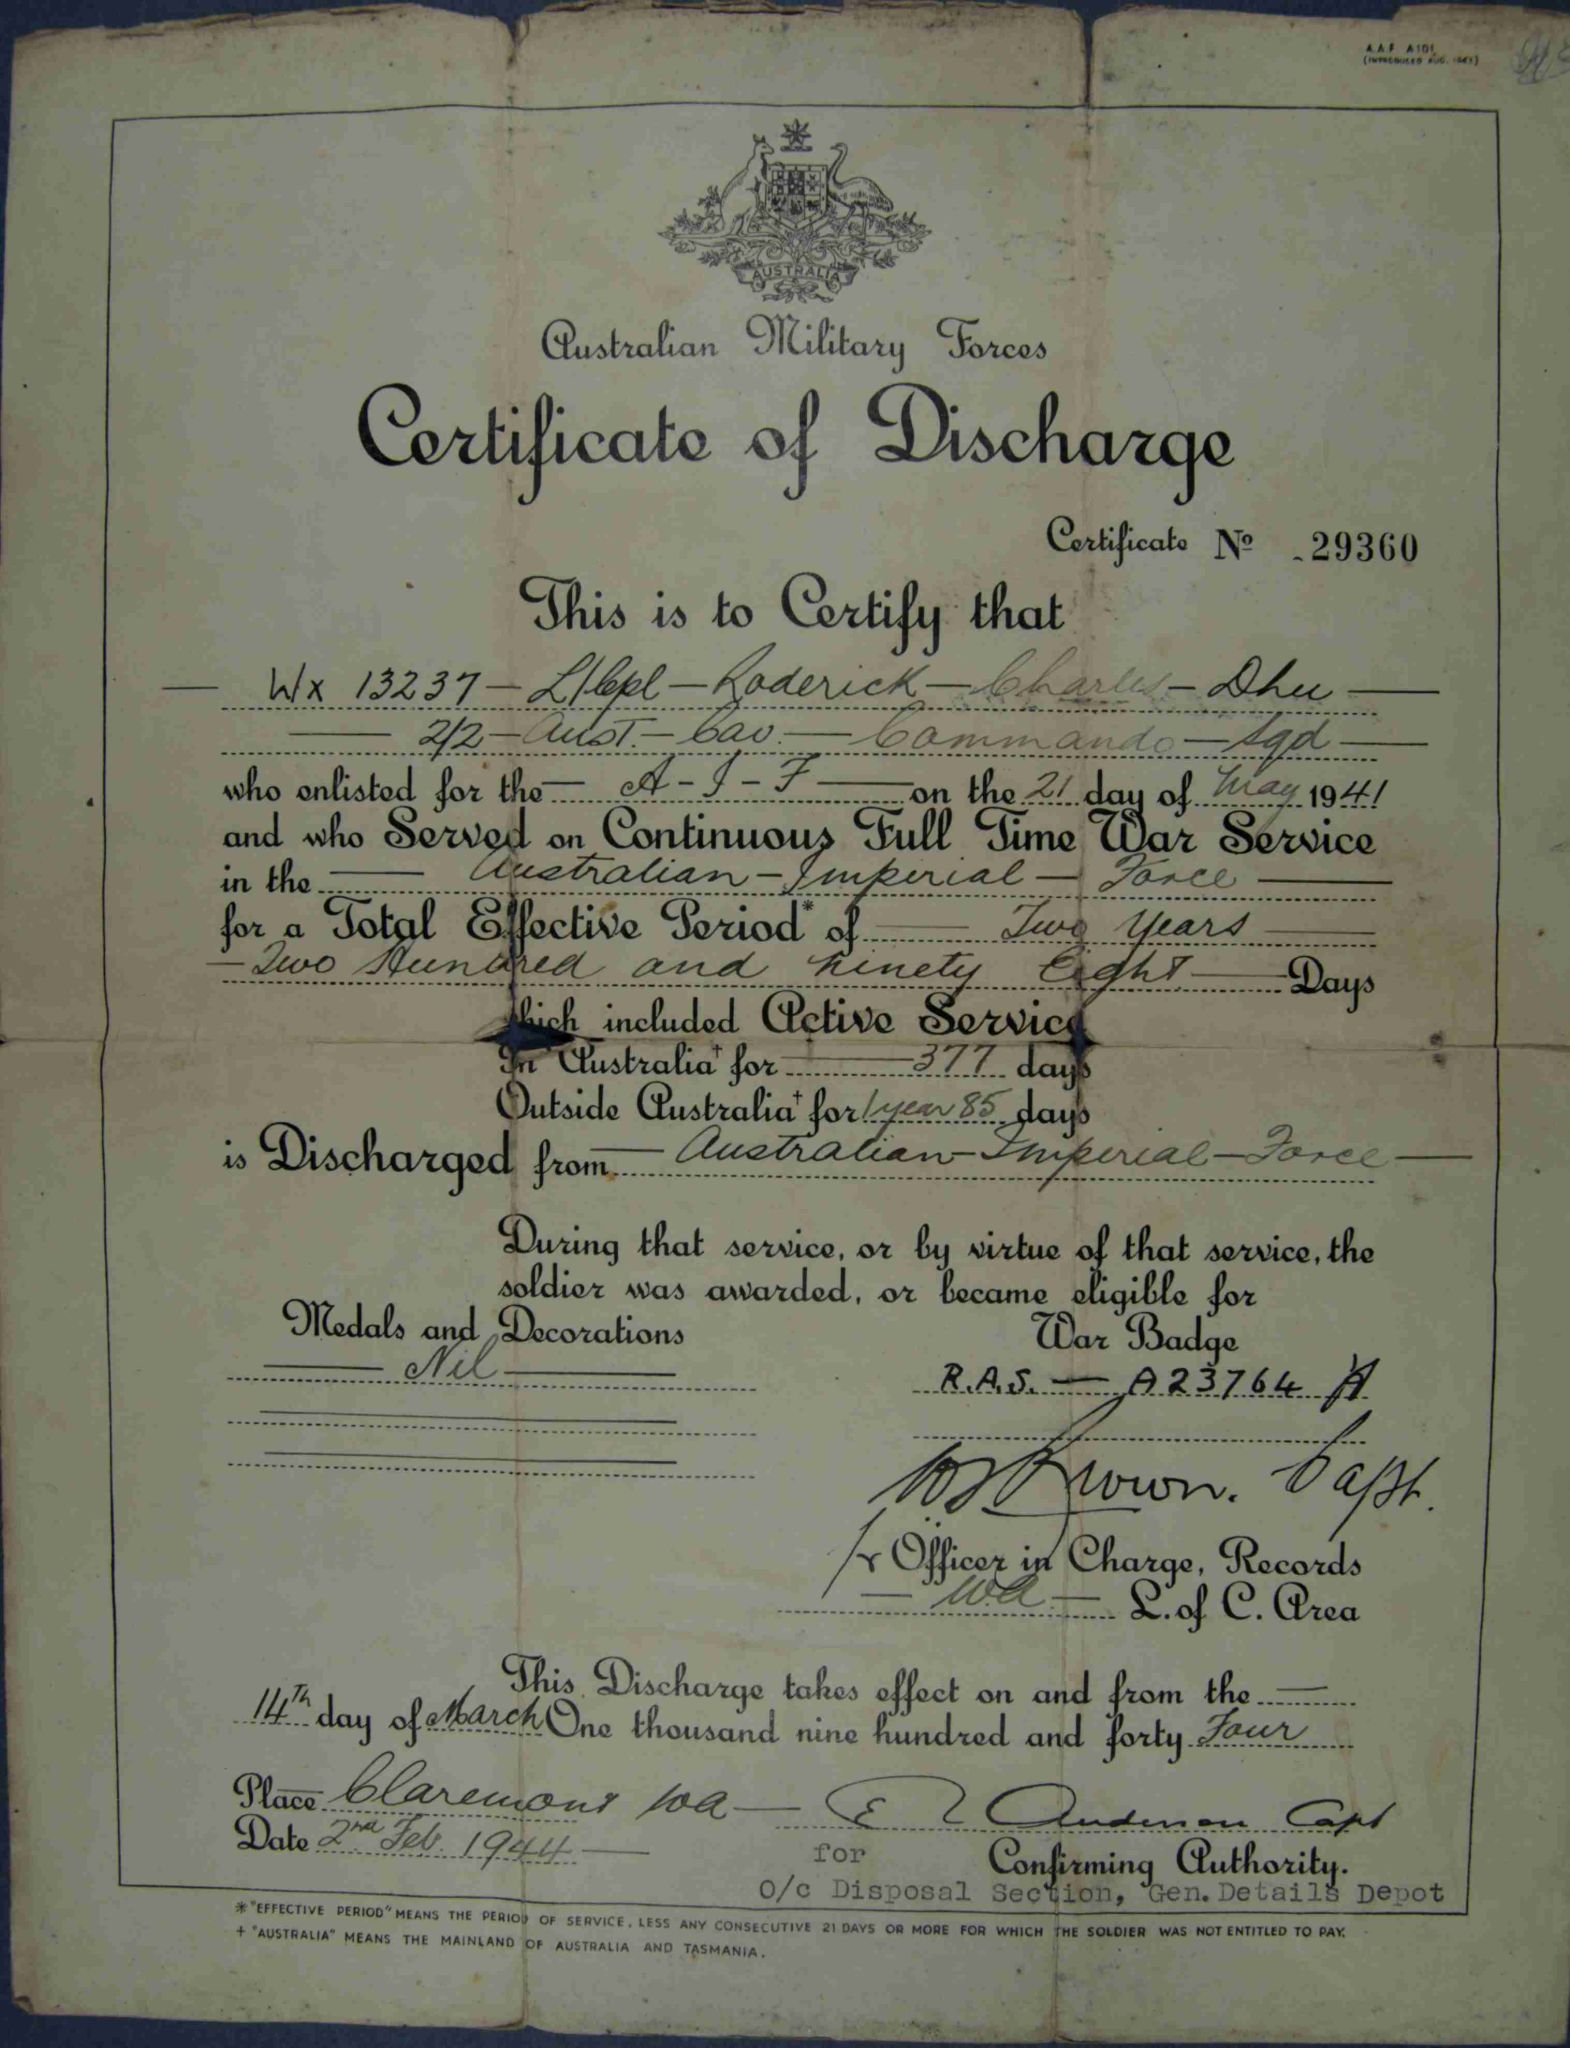 A.A.F. A101
(INTRODUCED AUG. 1943)
AUSTRALIA
Australian Military Forces
Certificate of Discharge
Certificate No 29360
This is to Certify that
Wx 13237 - L/Cpl - Roderick - Charles - Dhu
2/2 - Aust. - Cav. - Commando - Sqd
who enlisted for the A - I - F on the 21 day of May 1941
and who Served on Continuous Full Time War Service
in the Australian - Imperial - Force
for a Total Effective Period* of Two Years
Two Hundred and Ninety Eight Days
which included Active Service
In Australia† for 377 days
Outside Australia† for 1 year 85 days
is Discharged from Australian - Imperial - Force
During that service, or by virtue of that service, the
soldier was awarded, or became eligible for
Medals and Decorations War Badge
Nil R.A.S. - A23764
Brown. Capt.
fr Officer in Charge, Records
W.A. L. of C. Area
This Discharge takes effect on and from the
14th day of March One thousand nine hundred and forty Four
Place Claremont WA E Anderson Capt
Date 2nd Feb. 1944
for Confirming Authority.
O/c Disposal Section, Gen. Details Depot
* "EFFECTIVE PERIOD" MEANS THE PERIOD OF SERVICE, LESS ANY CONSECUTIVE 21 DAYS OR MORE FOR WHICH THE SOLDIER WAS NOT ENTITLED TO PAY.
+ "AUSTRALIA" MEANS THE MAINLAND OF AUSTRALIA AND TASMANIA.